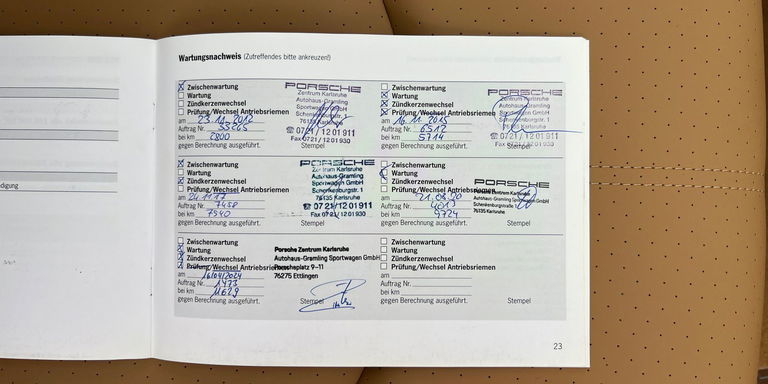 Wartungsnachweis (Zutreffendes bitte ankreuzen!)
Zwischenwartung
Wartung
Zündkerzenwechsel
Prüfung/Wechsel Antriebsriemen
am 23.11.2012
Auftrag Nr. 53265
bei km 2800
gegen Berechnung ausgeführt.
PORSCHE
Zentrum Karlsruhe
Autohaus-Gramling
Sportwagen GmbH
Schenkenburgstr. 1
76135 Karlsruhe
☎ 0721/1201911
Fax 0721/1201930
Stempel
Zwischenwartung
Wartung
Zündkerzenwechsel
Prüfung/Wechsel Antriebsriemen
am 16.11.2015
Auftrag Nr. 6512
bei km 5714
gegen Berechnung ausgeführt.
PORSCHE
Zentrum Karlsruhe
Autohaus-Gramling
Sportwagen GmbH
Schenkenburgstr. 1
76135 Karlsruhe
☎ 0721/1201911
Fax 0721/1201930
Stempel
Zwischenwartung
Wartung
Zündkerzenwechsel
Prüfung/Wechsel Antriebsriemen
am 24.11.17
Auftrag Nr. 7458
bei km 7940
gegen Berechnung ausgeführt.
PORSCHE
Zentrum Karlsruhe
Autohaus-Gramling
Sportwagen GmbH
Schenkenburgstr. 1
76135 Karlsruhe
☎ 0721/1201911
Fax 0721/1201930
Stempel
Zwischenwartung
Wartung
Zündkerzenwechsel
Prüfung/Wechsel Antriebsriemen
am 21.08.20
Auftrag Nr. 4013
bei km 9724
gegen Berechnung ausgeführt.
PORSCHE
Zentrum Karlsruhe
Autohaus-Gramling Sportwagen GmbH
Schenkenburgstr.
76135 Karlsruhe
Stempel
Zwischenwartung
Wartung
Zündkerzenwechsel
Prüfung/Wechsel Antriebsriemen
am 16/04/2024
Auftrag Nr. 1473
bei km 11629
gegen Berechnung ausgeführt.
Porsche Zentrum Karlsruhe
Autohaus-Gramling Sportwagen GmbH
Porscheplatz 9–11
76275 Ettlingen
Stempel
Zwischenwartung
Wartung
Zündkerzenwechsel
Prüfung/Wechsel Antriebsriemen
am
Auftrag Nr.
bei km
gegen Berechnung ausgeführt.
Stempel
digung
23